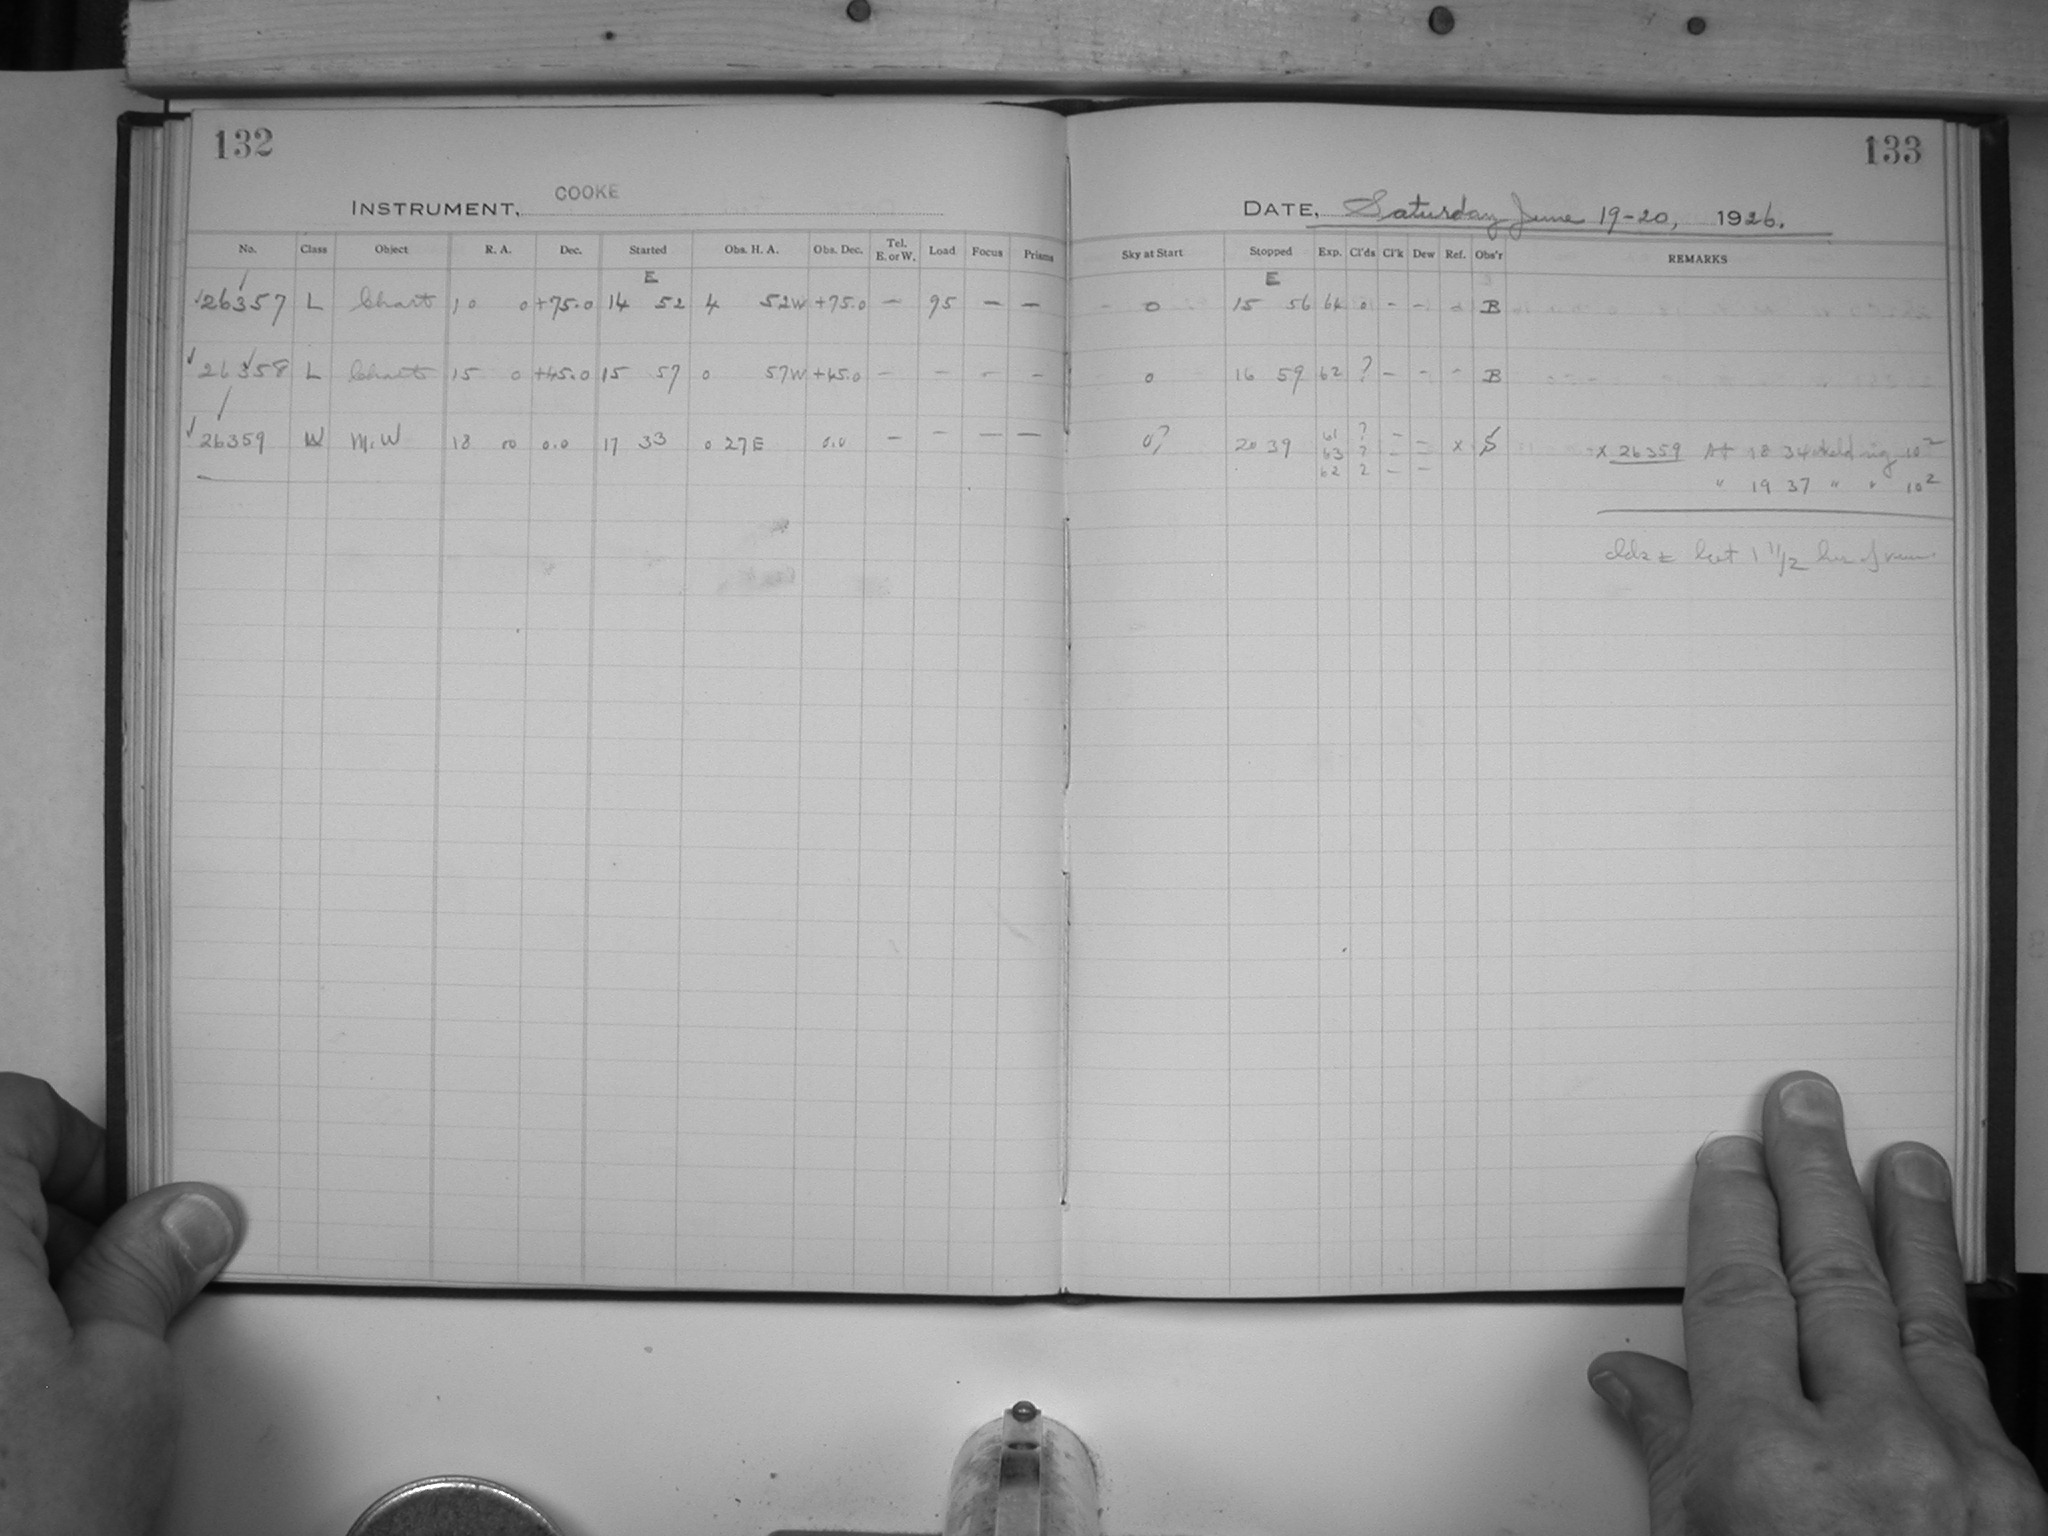 132
INSTRUMENT, COOKE
No. Class Object R. A. Dec. Started Obs. H. A. Obs. Dec. Tel. E. or W. Load Focus Prisms
E
26357 L Chart 10 0 +75.0 14 52 4 52W +75.0 — 95 — —
26358 L Chart 15 0 +45.0 15 57 0 57W +45.0 — — - -
26359 W M.W 18 00 0.0 17 33 0 27E 0.0 — — — —
133
DATE, Saturday June 19-20, 1926.
Sky at Start Stopped Exp. Cl'ds Cl'k Dew Ref. Obs'r REMARKS
E
0 15 56 64 0 - - - B
0 16 59 62 ? - - - B
0? 20 39 61 ? - - x S x 26359 At 18 34 10²
63 ? - -
62 ? - - " 19 37 " " 10²
last 1 1/2 of